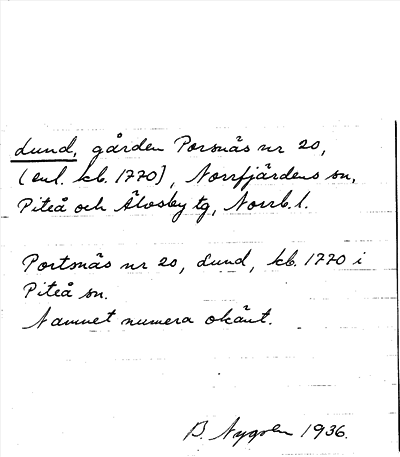 Lund, gården Porsnäs nr 20,
(enl. kb. 1770), Norrfjärdens sn,
Piteå och Älvsby tg, Norrb. l.
Portsnäs nr 20, Lund, kb. 1770 i
Piteå sn.
Namnet numera okänt.
B. Nygren 1936.